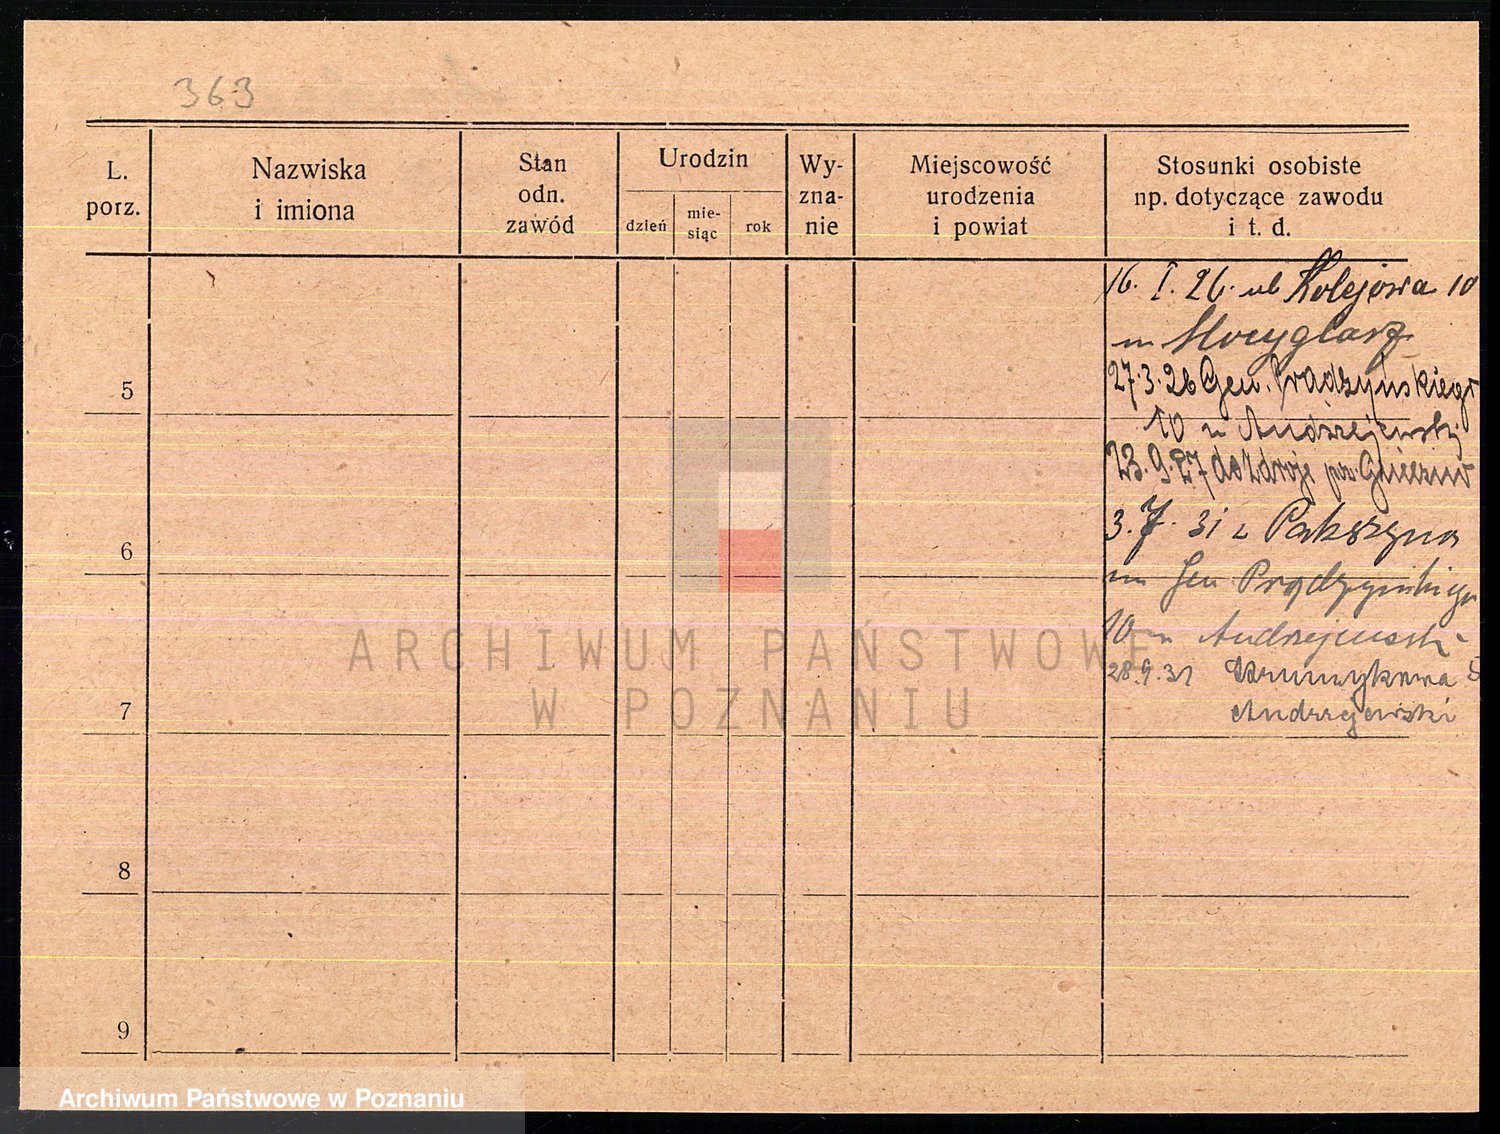 363
L. porz.
Nazwiska i imiona
Stan odn. zawód
Urodzin
dzień
mie-siąc
rok
Wy-zna-nie
Miejscowość urodzenia i powiat
Stosunki osobiste np. dotyczące zawodu i t. d.
16. I. 26. ul Kolejowa 10
27.3.26 Gen. Prądzyńskiego
5
10 u Andrzejewski
23.9.27 do Zdroje
3.7.31 z
6
Gen Prądzyńskiego
10 Andrzejewski
28.9.31
7
Andrzejewski
8
9
ARCHIWUM PAŃSTWOWE
W POZNANIU
Archiwum Państwowe w Poznaniu